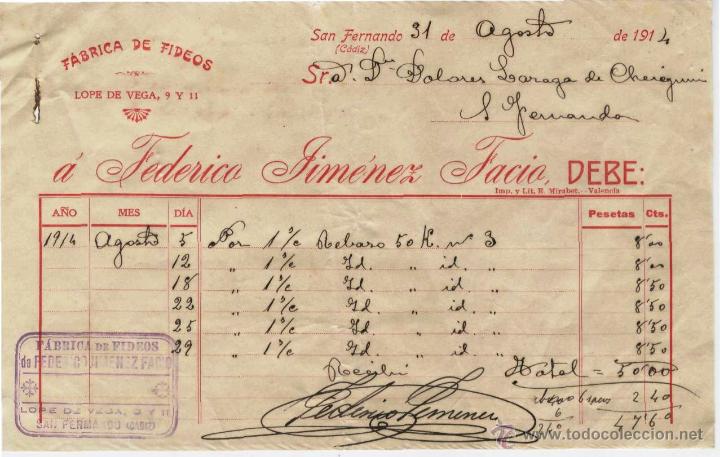 FÁBRICA DE FIDEOS
LOPE DE VEGA, 9 Y 11
San Fernando 31 de Agosto de 1914
(Cádiz)
Sra. Dª Dolores Lazaga de
S. Fernando
á Federico Jiménez Facio, DEBE:
Imp. y Lit. E. Mirabet.—Valencia
AÑO MES DÍA Pesetas Cts.
1914 Agosto 5 Por 1 s/c 50 K. nº 3 8'00
12 " 1 s/c Id. " id. " 8'00
18 " 1 s/c Id. " id. " 8'50
22 " 1 s/c Id. " id. " 8'50
25 " 1 s/c Id. " id. " 8'50
29 " 1 s/c Id. " id. " 8'50
Recibí Total = 50'00
2 40
Federico Jimenez
6
2/40 47'60
FÁBRICA DE FIDEOS
de FEDERICO JIMENEZ FACIO
LOPE DE VEGA, 9 Y 11
SAN FERNANDO (CADIZ)
www.todocoleccion.net